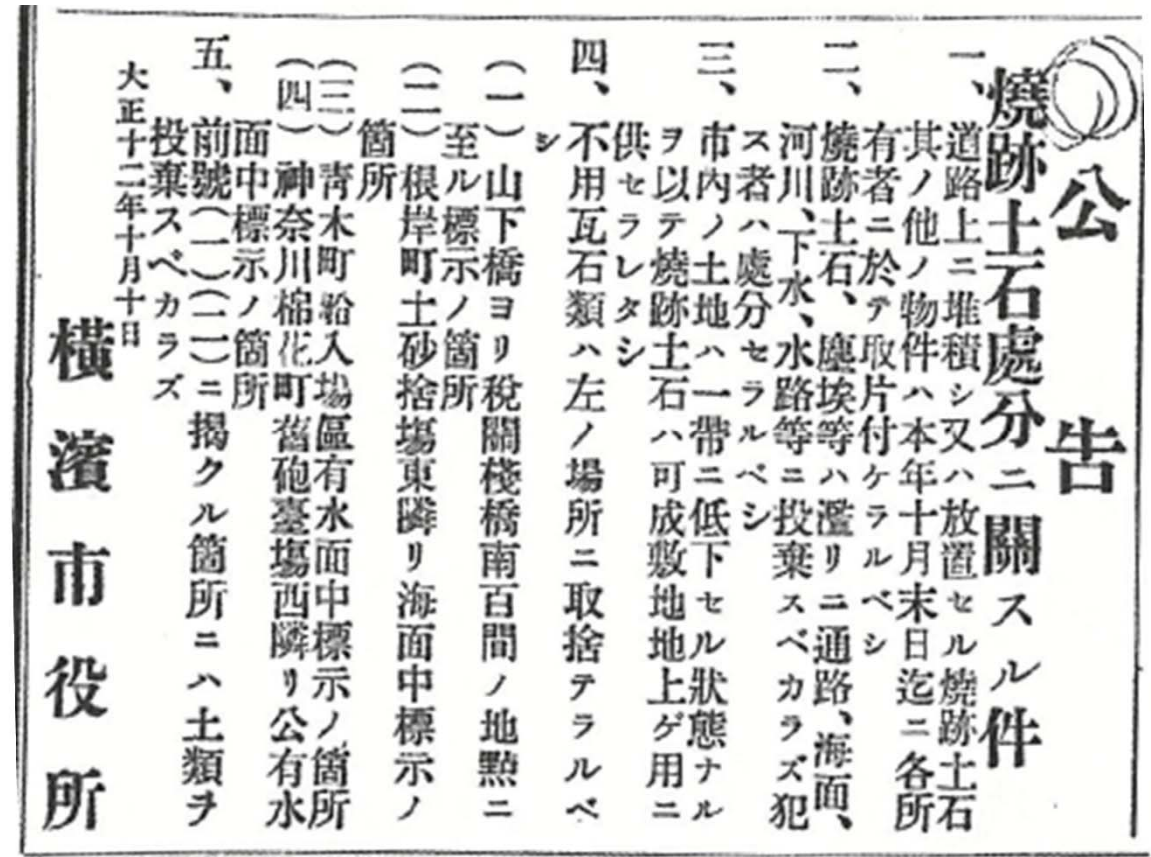 公告
燒跡土石處分ニ關スル件
一、道路上ニ堆積シ又ハ放置セル燒跡土石
其ノ他ノ物件ハ本年十月末日迄ニ各所
有者ニ於テ取片付ケラルベシ
二、燒跡土石、塵埃等ハ濫リニ通路、海面、
河川、下水、水路等ニ投棄スベカラズ犯
ス者ハ處分セラルベシ
三、市內ノ土地ハ一帶ニ低下セル狀態ナル
ヲ以テ燒跡土石ハ可成敷地地上ゲ用ニ
供セラレタシ
四、不用瓦石類ハ左ノ場所ニ取捨テラルベ
シ
(一)山下橋ヨリ稅關棧橋南百間ノ地點ニ
至ル標示ノ箇所
(二)根岸町土砂捨塲東隣リ海面中標示ノ
箇所
(三)靑木町船入塲區有水面中標示ノ箇所
(四)神奈川棉花町舊砲臺塲西隣リ公有水
面中標示ノ箇所
五、前號(一)(二)ニ揭クル箇所ニハ土類ヲ
投棄スベカラズ
大正十二年十月十日
橫濱市役所